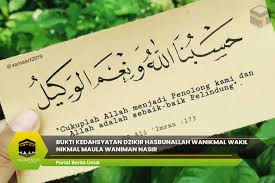 @vannaart2019
حسبنا الله ونعم الوكيل
"Cukuplah Allah menjadi Penolong kami dan
Allah adalah sebaik-baik Pelindung".
Ali 'Imran :173
BUKTI KEDAHSYATAN DZIKIR HASBUNALLAH WANIKMAL WAKIL
NIKMAL MAULA WANIMAN NASIR
Portal Berita Umat